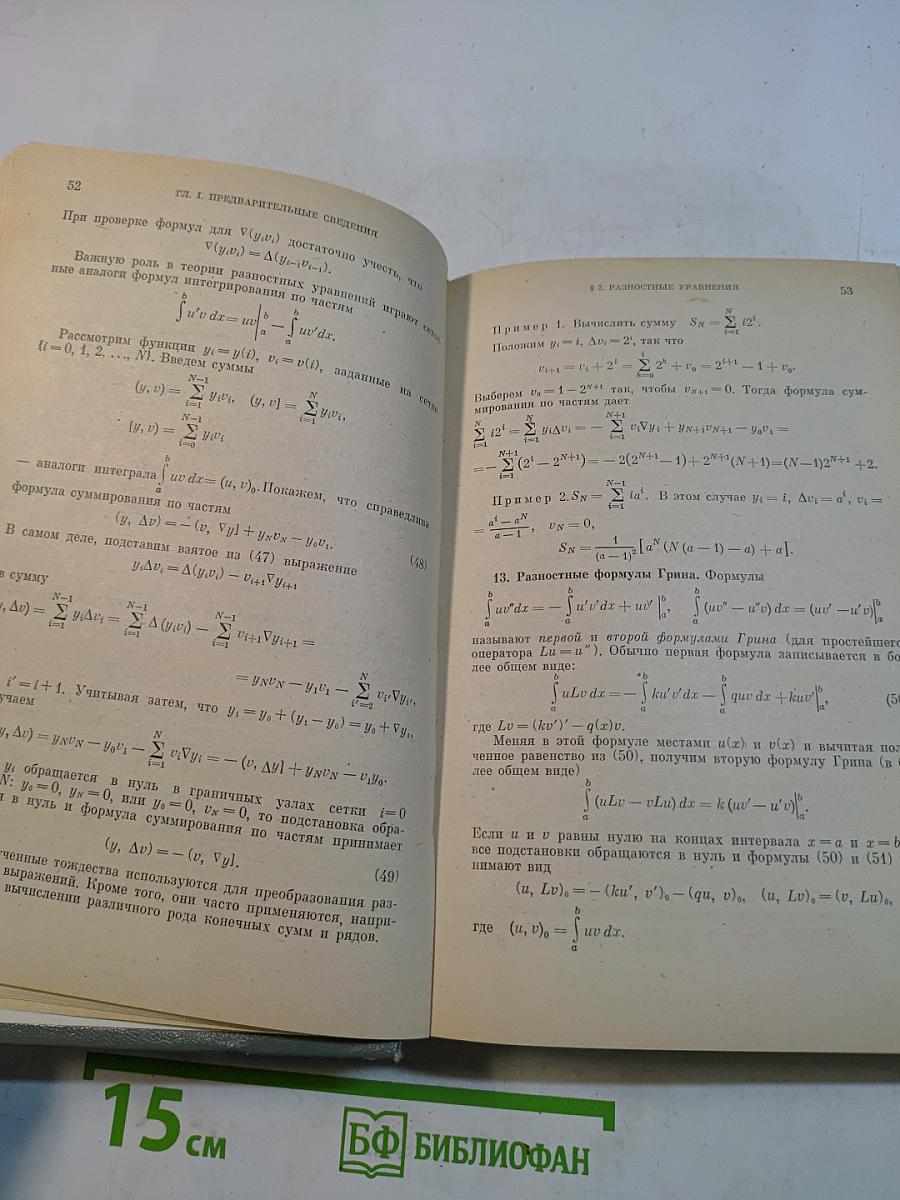 52
ГЛ. I. ПРЕДВАРИТЕЛЬНЫЕ СВЕДЕНИЯ
При проверке формул для ∇(yᵢvᵢ) достаточно учесть, что
∇(yᵢvᵢ) = Δ(yᵢ₋₁vᵢ₋₁).
Важную роль в теории разностных уравнений играют
ные аналоги формул интегрирования по частям
∫ₐᵇ u′v dx = uv|ₐᵇ − ∫ₐᵇ uv′dx.
Рассмотрим функции yᵢ = y(i), vᵢ = v(i), заданные на сетке
{i = 0, 1, 2, ..., N}. Введем суммы
(y, v) = ∑ᵢ₌₁ᴺ⁻¹ yᵢvᵢ, (y, v] = ∑ᵢ₌₁ᴺ yᵢvᵢ,
[y, v) = ∑ᵢ₌₀ᴺ⁻¹ yᵢvᵢ
— аналоги интеграла ∫ₐᵇ uv dx = (u, v)₀. Покажем, что справедлива
формула суммирования по частям
(y, Δv) = − (v, ∇y] + y_N v_N − y₀v₁. (48)
В самом деле, подставим взятое из (47) выражение
yᵢΔvᵢ = Δ(yᵢvᵢ) − vᵢ₊₁∇yᵢ₊₁
в сумму
y, Δv) = ∑ᵢ₌₁ᴺ⁻¹ yᵢΔvᵢ = ∑ᵢ₌₁ᴺ⁻¹ Δ(yᵢvᵢ) − ∑ᵢ₌₁ᴺ⁻¹ vᵢ₊₁∇yᵢ₊₁ =
= y_N v_N − y₁v₁ − ∑ᵢ′₌₂ᴺ vᵢ′∇yᵢ′,
i′ = i + 1. Учитывая затем, что y₁ = y₀ + (y₁ − y₀) = y₀ + ∇y₁,
учаем
y, Δv) = y_N v_N − y₀v₁ − ∑ᵢ₌₁ᴺ vᵢ∇yᵢ = − (v, Δy] + y_N v_N − v₁y₀.
yᵢ обращается в нуль в граничных узлах сетки i = 0
N: y₀ = 0, y_N = 0, или y₀ = 0, v_N = 0, то подстановка обра-
я в нуль и формула суммирования по частям принимает
(y, Δv) = − (v, ∇y]. (49)
ученные тождества используются для преобразования раз-
выражений. Кроме того, они часто применяются, напри-
вычислении различного рода конечных сумм и рядов.
§ 2. РАЗНОСТНЫЕ УРАВНЕНИЯ
53
Пример 1. Вычислить сумму S_N = ∑ᵢ₌₁ᴺ i2ⁱ.
Положим yᵢ = i, Δvᵢ = 2ⁱ, так что
vᵢ₊₁ = vᵢ + 2ⁱ = ∑ₖ₌₀ⁱ 2ᵏ + v₀ = 2ⁱ⁺¹ − 1 + v₀.
Выберем v₀ = 1 − 2ᴺ⁺¹ так, чтобы v_{N+1} = 0. Тогда формула сум-
мирования по частям дает
∑ᵢ₌₁ᴺ i2ⁱ = ∑ᵢ₌₁ᴺ yᵢΔvᵢ = − ∑ᵢ₌₁ᴺ⁺¹ vᵢ∇yᵢ + y_{N+1}v_{N+1} − y₀v₁ =
= − ∑ᵢ₌₁ᴺ⁺¹ (2ⁱ − 2ᴺ⁺¹) = − 2(2ᴺ⁺¹ − 1) + 2ᴺ⁺¹(N+1) = (N−1)2ᴺ⁺¹ + 2.
Пример 2. S_N = ∑ᵢ₌₁ᴺ⁻¹ iaⁱ. В этом случае yᵢ = i, Δvᵢ = aⁱ, vᵢ =
= (aⁱ − aᴺ)/(a − 1), v_N = 0,
S_N = 1/(a − 1)² [aᴺ (N (a − 1) − a) + a].
13. Разностные формулы Грина. Формулы
∫ₐᵇ uv″dx = − ∫ₐᵇ u′v′dx + uv′|ₐᵇ, ∫ₐᵇ (uv″ − u″v) dx = (uv′ − u′v)|ₐᵇ
называют первой и второй формулами Грина (для простейшего
оператора Lu = u″). Обычно первая формула записывается в бо
лее общем виде:
∫ₐᵇ uLv dx = − ∫ₐᵇ ku′v′dx − ∫ₐᵇ quv dx + kuv′|ₐᵇ, (5
где Lv = (kv′)′ − q(x)v.
Меняя в этой формуле местами u(x) и v(x) и вычитая пол
ченное равенство из (50), получим вторую формулу Грина (в
лее общем виде)
∫ₐᵇ (uLv − vLu) dx = k (uv′ − u′v)|ₐᵇ.
Если u и v равны нулю на концах интервала x = a и x = b
все подстановки обращаются в нуль и формулы (50) и (51)
нимают вид
(u, Lv)₀ = − (ku′, v′)₀ − (qu, v)₀, (u, Lv)₀ = (v, Lu)₀,
где (u, v)₀ = ∫ₐᵇ uv dx.
15 см
БФ БИБЛИОФАН